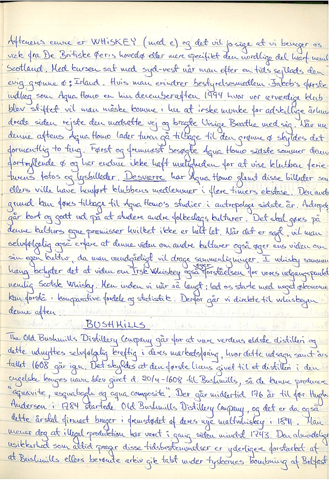 Aftenens emne er WHISKEY (med e) og det vil jo sige at vi bevæger os
væk fra De Britiske Øers hovedø eller mere specifikt den nordlige del heraf nemlig
Scotland. Med kursen sat mod syd-vest når man efter en tids sejlads den
evig grønne ø: Irland. Hvis man erindrer bestyrelsesmedlem første
indlæg som Aqua Homo en kun decemberaften 1994 hvor vor ærværdige klub
blev stiftet vil man måske komme i hu at irske munke for adskillige århund-
reds siden rejste den modsatte vej og bragte Uisge Beatha med sig. Når nu
denne aftens Aqua Homo lader turen gå tilbage til den grønne ø skyldes det
formentlig to ting. Først og fremmest besøgte Aqua Homo sidste sommer denne
fortryllende ø og har endnu ikke haft muligheden for at vise klubben ferie
turens fotos og lysbilleder. Desværre har Aqua Homo glemt disse billeder som
ellers ville have henført klubbens medlemmer i flere timers ekstase. Den anden
grund kan føres tilbage til Aqua Homo's studier i antropologi sidste år. Antropologi
går kort og godt ud på at studere andre folkeslags kulturer. Det skal gøres på
denne kulturs egne præmisser hvilket ikke er helt let. Når det er sagt, vil man
selvfølgelig også erfare at denne viden om andre kulturer også øger ens viden om
sin egen kultur, da man uundgåeligt vil drage sammenligninger. I whisky sammen
hæng betyder det at viden om Irsk Whiskey også øger forståelsen for vores udgangspunkt
nemlig Scotsk Whisky. Men inden vi når så langt, lad os starte med noget økonomerne
kan forstå - komparative fordele og statistik. Derfor går vi direkte til whiskeyen
denne aften
BUSHMILLS
The Old Bushmills Distillery Company gør for at være verdens ældste distilleri og
dette udnyttes selvfølgelig kraftigt i deres markedsføring, hvor dette udsagn samt års
tallet 1608 går igen. Det skyldes at den første licens givet til et distilleri i den
engelske konges navn blev givet d. 20/4-1608 til Bushmills, så de kunne producere
"aquavite, usquabagh og aqua composite". Der går imidlertid 176 år til før Hugh
Andersen i 1784 startede Old Bushmills Distillery Company, og det er da også
dette årstal firmaet bruger i fremstødet af deres nye maltwhiskey i 1841. Man
mener dog at illegal produktion har været i gang siden mindst 1743. Den almindelige
usikkerhed som altid præger disse tidsbestemmelser er yderligere forstærket af
at Bushmills ellers berømte arkiv gik tabt under tyskernes bombning af Belfast